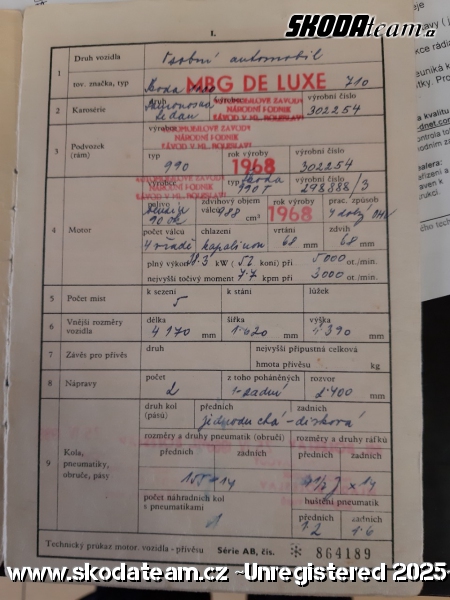 I.
ŠKODAteam.cz
1
Druh vozidla
Osobní automobil
tov. značka, typ
Škoda
MBG DE LUXE
710
2
Karosérie
druh
výrobce
výrobní číslo
sedan
AUTOMOBILOVÉ ZÁVODY
NÁRODNÍ PODNIK
ZÁVOD V ML. BOLESLAVI
302254
3
Podvozek
(rám)
výrobce
AUTOMOBILOVÉ ZÁVODY
NÁRODNÍ PODNIK
ZÁVOD V ML. BOLESLAVI
typ
rok výroby
výrobní číslo
990
1968
302254
4
Motor
výrobce
typ
výrobní číslo
AUTOMOBILOVÉ ZÁVODY
NÁRODNÍ PODNIK
ZÁVOD V ML. BOLESLAVI
Škoda
990T
298888/3
palivo
zdvihový objem
válců
988
cm³
rok výroby
1968
prac. způsob
benzin
90 ok
počet válců
chlazení
vrtání
zdvih
4 v řadě
kapalinou
68
mm
68
mm
plný výkon
38.3
kW (
52
koní) při
5000
ot./min.
nejvyšší točivý moment
7.7
kpm při
3000
ot./min.
5
Počet míst
k sezení
k stání
lůžek
5
6
Vnější rozměry
vozidla
délka
šířka
výška
4170
mm
1.620
mm
1.390
mm
7
Závěs pro přívěs
druh
nejvyšší přípustná celková
hmota přívěsu
kg
8
Nápravy
počet
z toho poháněných
rozvor
2
1-zadní
2400
mm
9
Kola,
pneumatiky,
obruče, pásy
druh kol
(pásů)
předních
zadních
jednoduchá-disková
rozměry a druhy pneumatik (obručí)
rozměry a druhy ráfků
předních
zadních
předních
zadních
155x14
4½ J x 14
počet náhradních kol
s pneumatikami
huštění pneumatik
předních
zadních
1
1.2
1.6
Technický průkaz motor. vozidla - přívěsu
Série AB, čís.
864189
www.skodateam.cz ~Unregistered 2025-